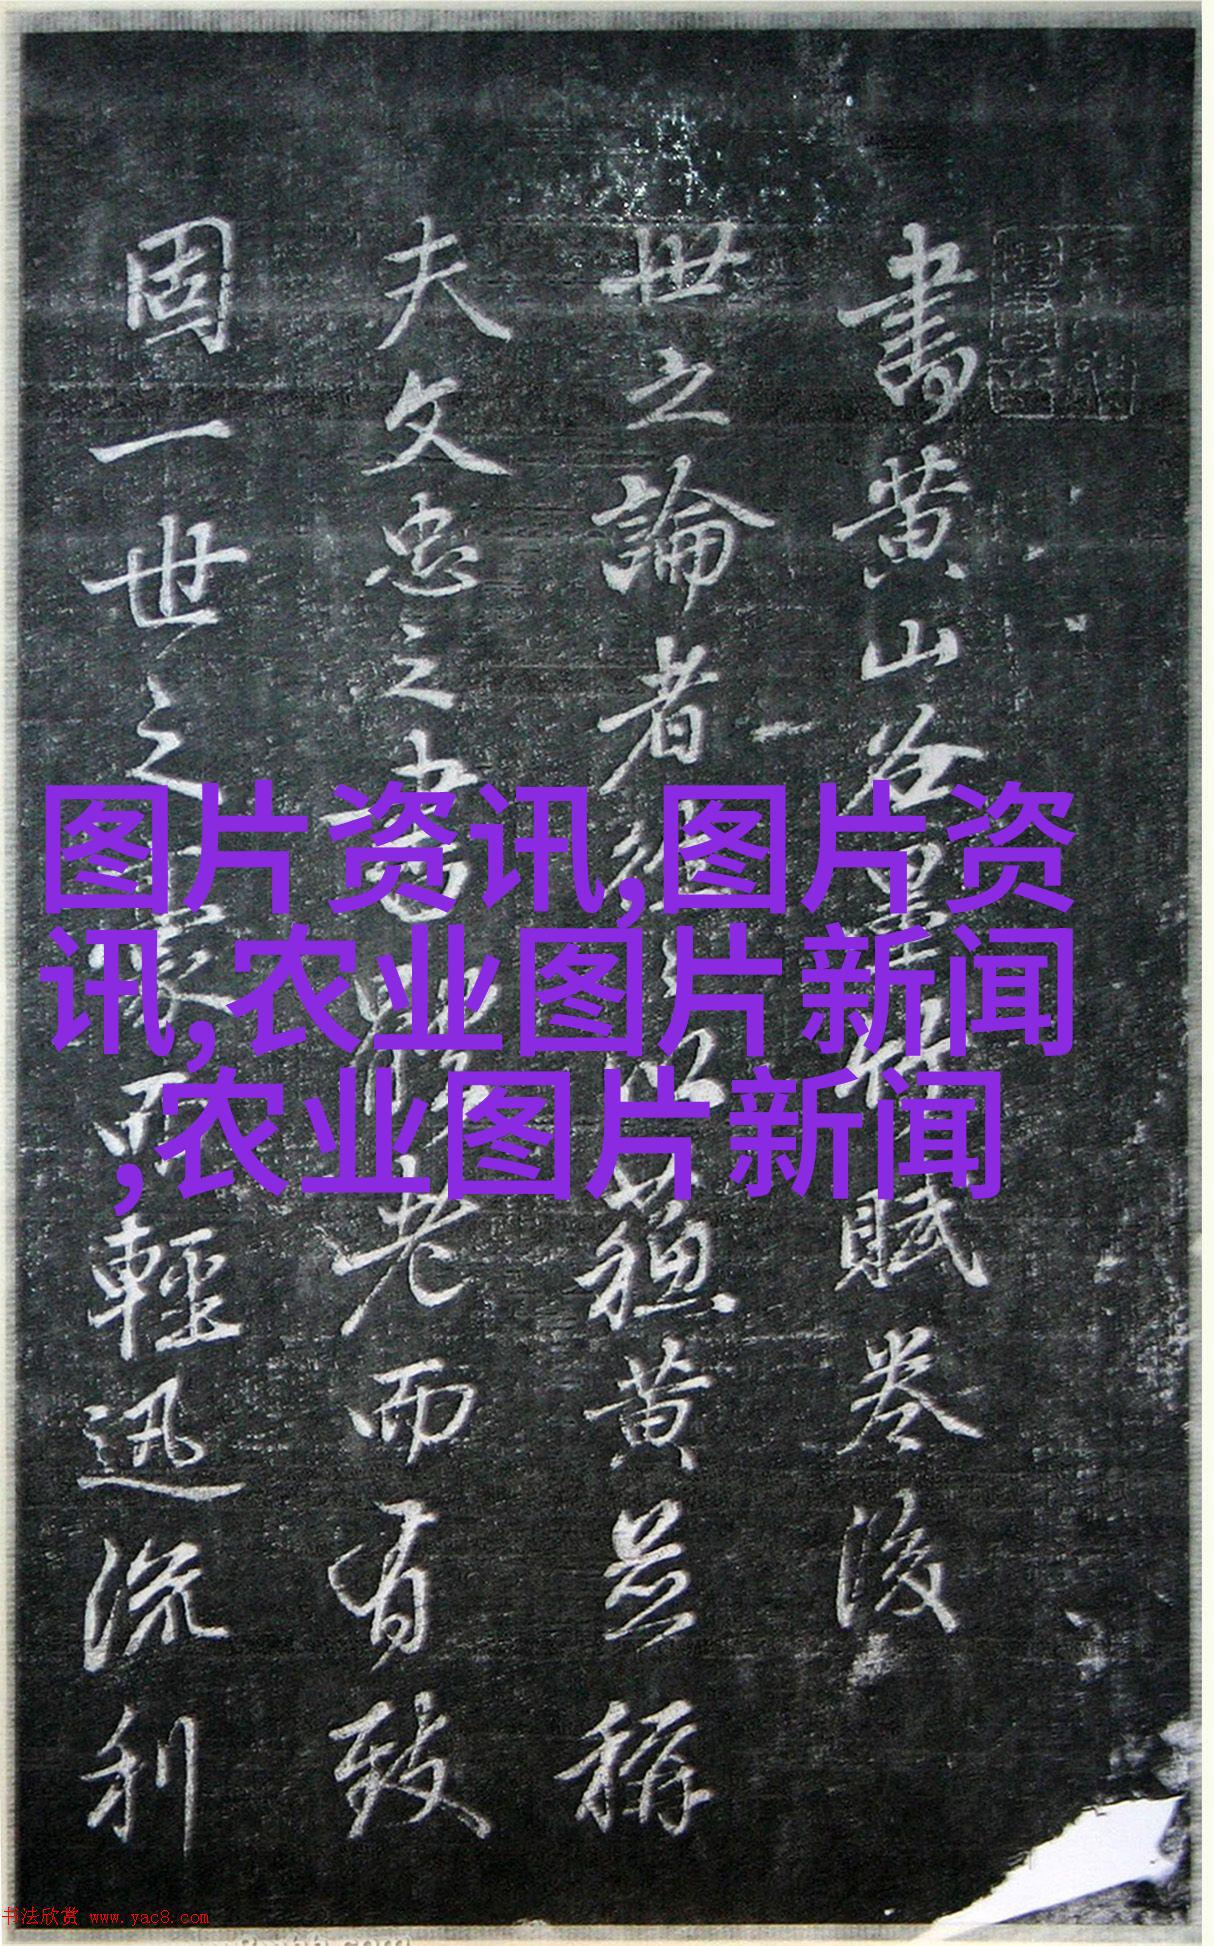 書黄山谷墨竹賦卷後
世之論者以蘓黄並稱
夫文忠之書體老而有致
固一世之豪而輕迅流利
图片资讯,图片资
讯,农业图片新闻
,农业图片新闻
书法欣赏 www.yac8.com